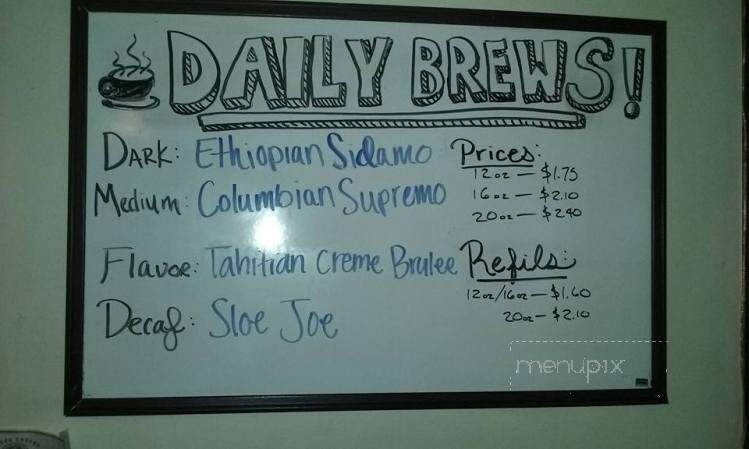 DAILY BREWS!
DARK: Ethiopian Sidamo
Medium: Columbian Supremo
Flavor: Tahitian Creme Brulee
Decaf: Sloe Joe
Prices:
12oz — $1.75
16oz — $2.10
20oz — $2.40
Refils:
12oz/16oz — $1.60
20oz — $2.10
menupix